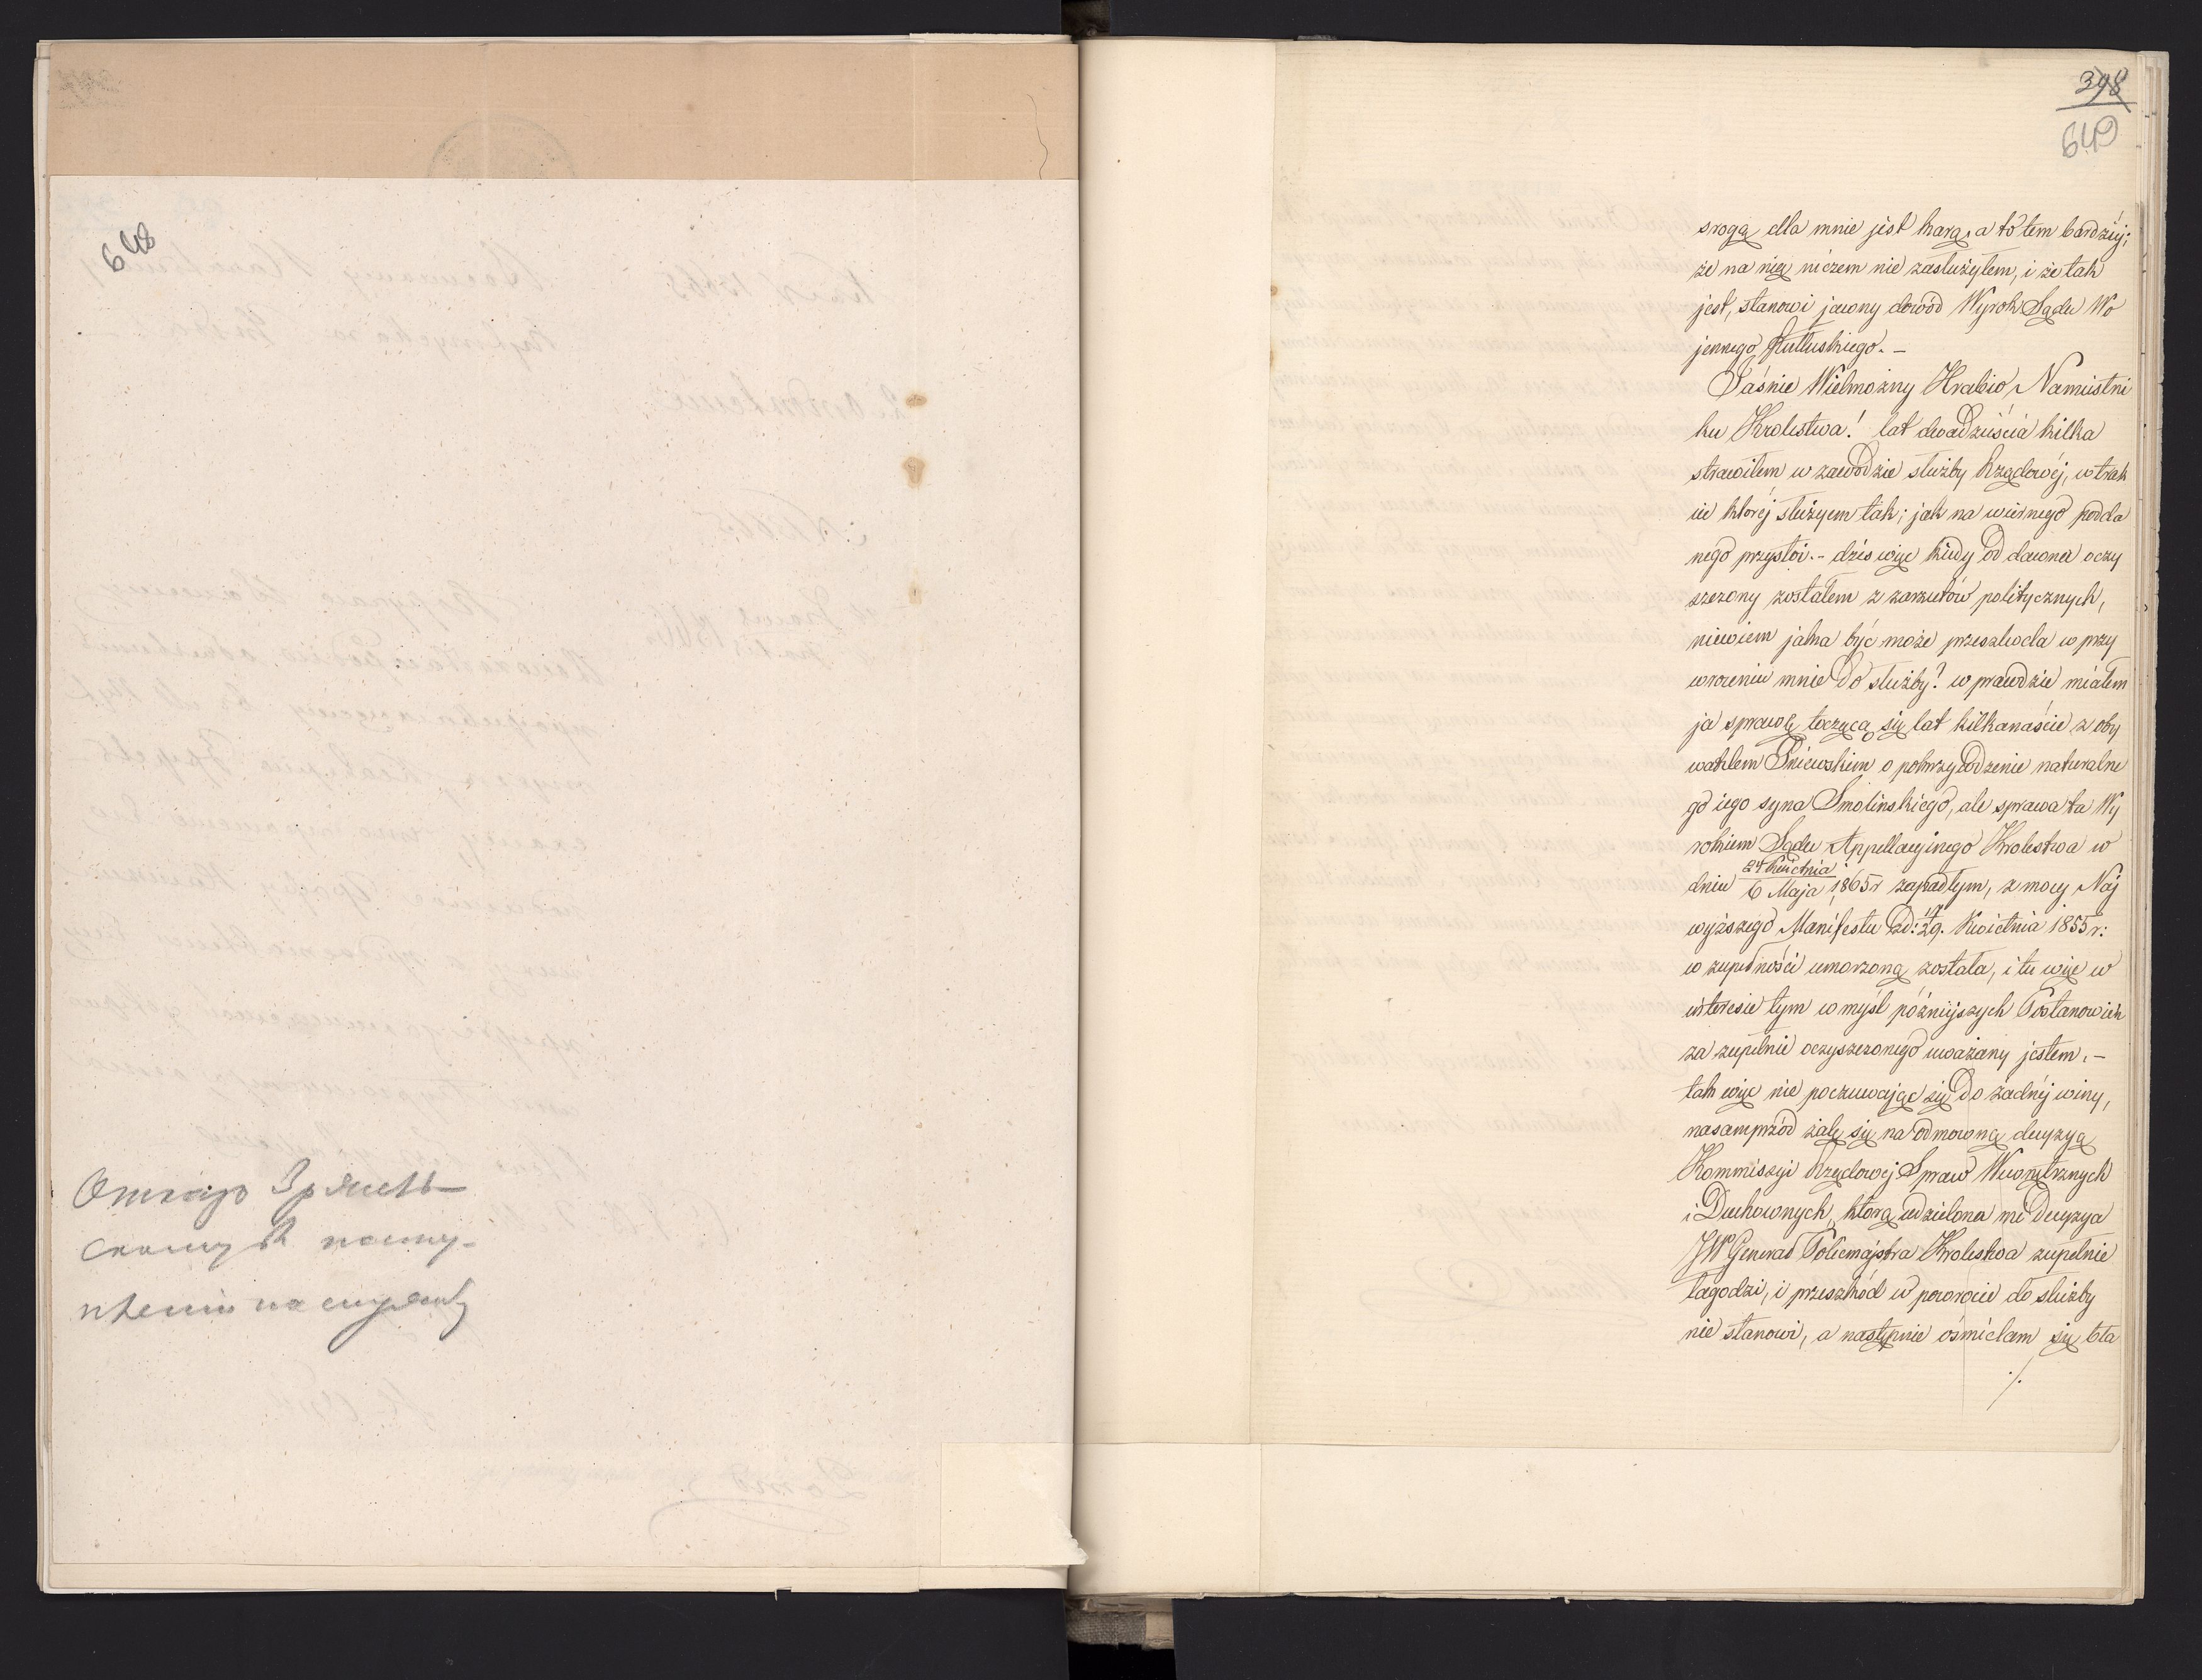 648
398
649
srogą dla mnie jest karą, a to tem bardziéj;
że na nię niczem nie zasłużyłem, i że tak
jest, stanowi jawny dowód Wyrok Sądu Wo
jennego Pułtuskiego. –
Jaśnie Wielmożny Hrabio Namiestni
ku Krolestwa! lat dwadzieścia kilka
strawiłem w zawodzie służby Rządowéj, w trak
cie któréj służyem tak; jak na wiernego podda
nego przystoi. – dziś więc kiedy od dawna oczy
szczony zostałem z zarzutów politycznych,
niewiem jaka być może przeszkoda w przy
wroceniu mnie do służby? w prawdzie miałem
ja sprawę toczącą się lat kilkanaście z oby
watelem Śniewskim o pokrzywdzenie naturalne
go iego syna Smolinskiego, ale sprawa ta Wy
rokiem Sądu Appellacyinego Krolestwa w
dniu 24 Kwietnia / 6 Maja 1865 r zapadłym, z mocy Naj
wyższego Manifestu zd: 17/29. Kwietnia 1855 r:
w zupełności umorzoną została, i tu więc w
interesie tym w myśl późniejszych Postanowień
za zupełnie oczyszczonego uważany jestem. –
tak więc nie poczuwając się do żadnéj winy,
nasamprzód żalę się na odmowną decyzyą
Kommissyi Rządowéj Spraw Wewnętrznych
i Duchownych, którą udzielona mi decyzya
JW Generał Policmajstra Krolestwa zupełnie
łagodzi, i przeszkód w powrocie do służby
nie stanowi, a następnie ośmielam się bła
./.